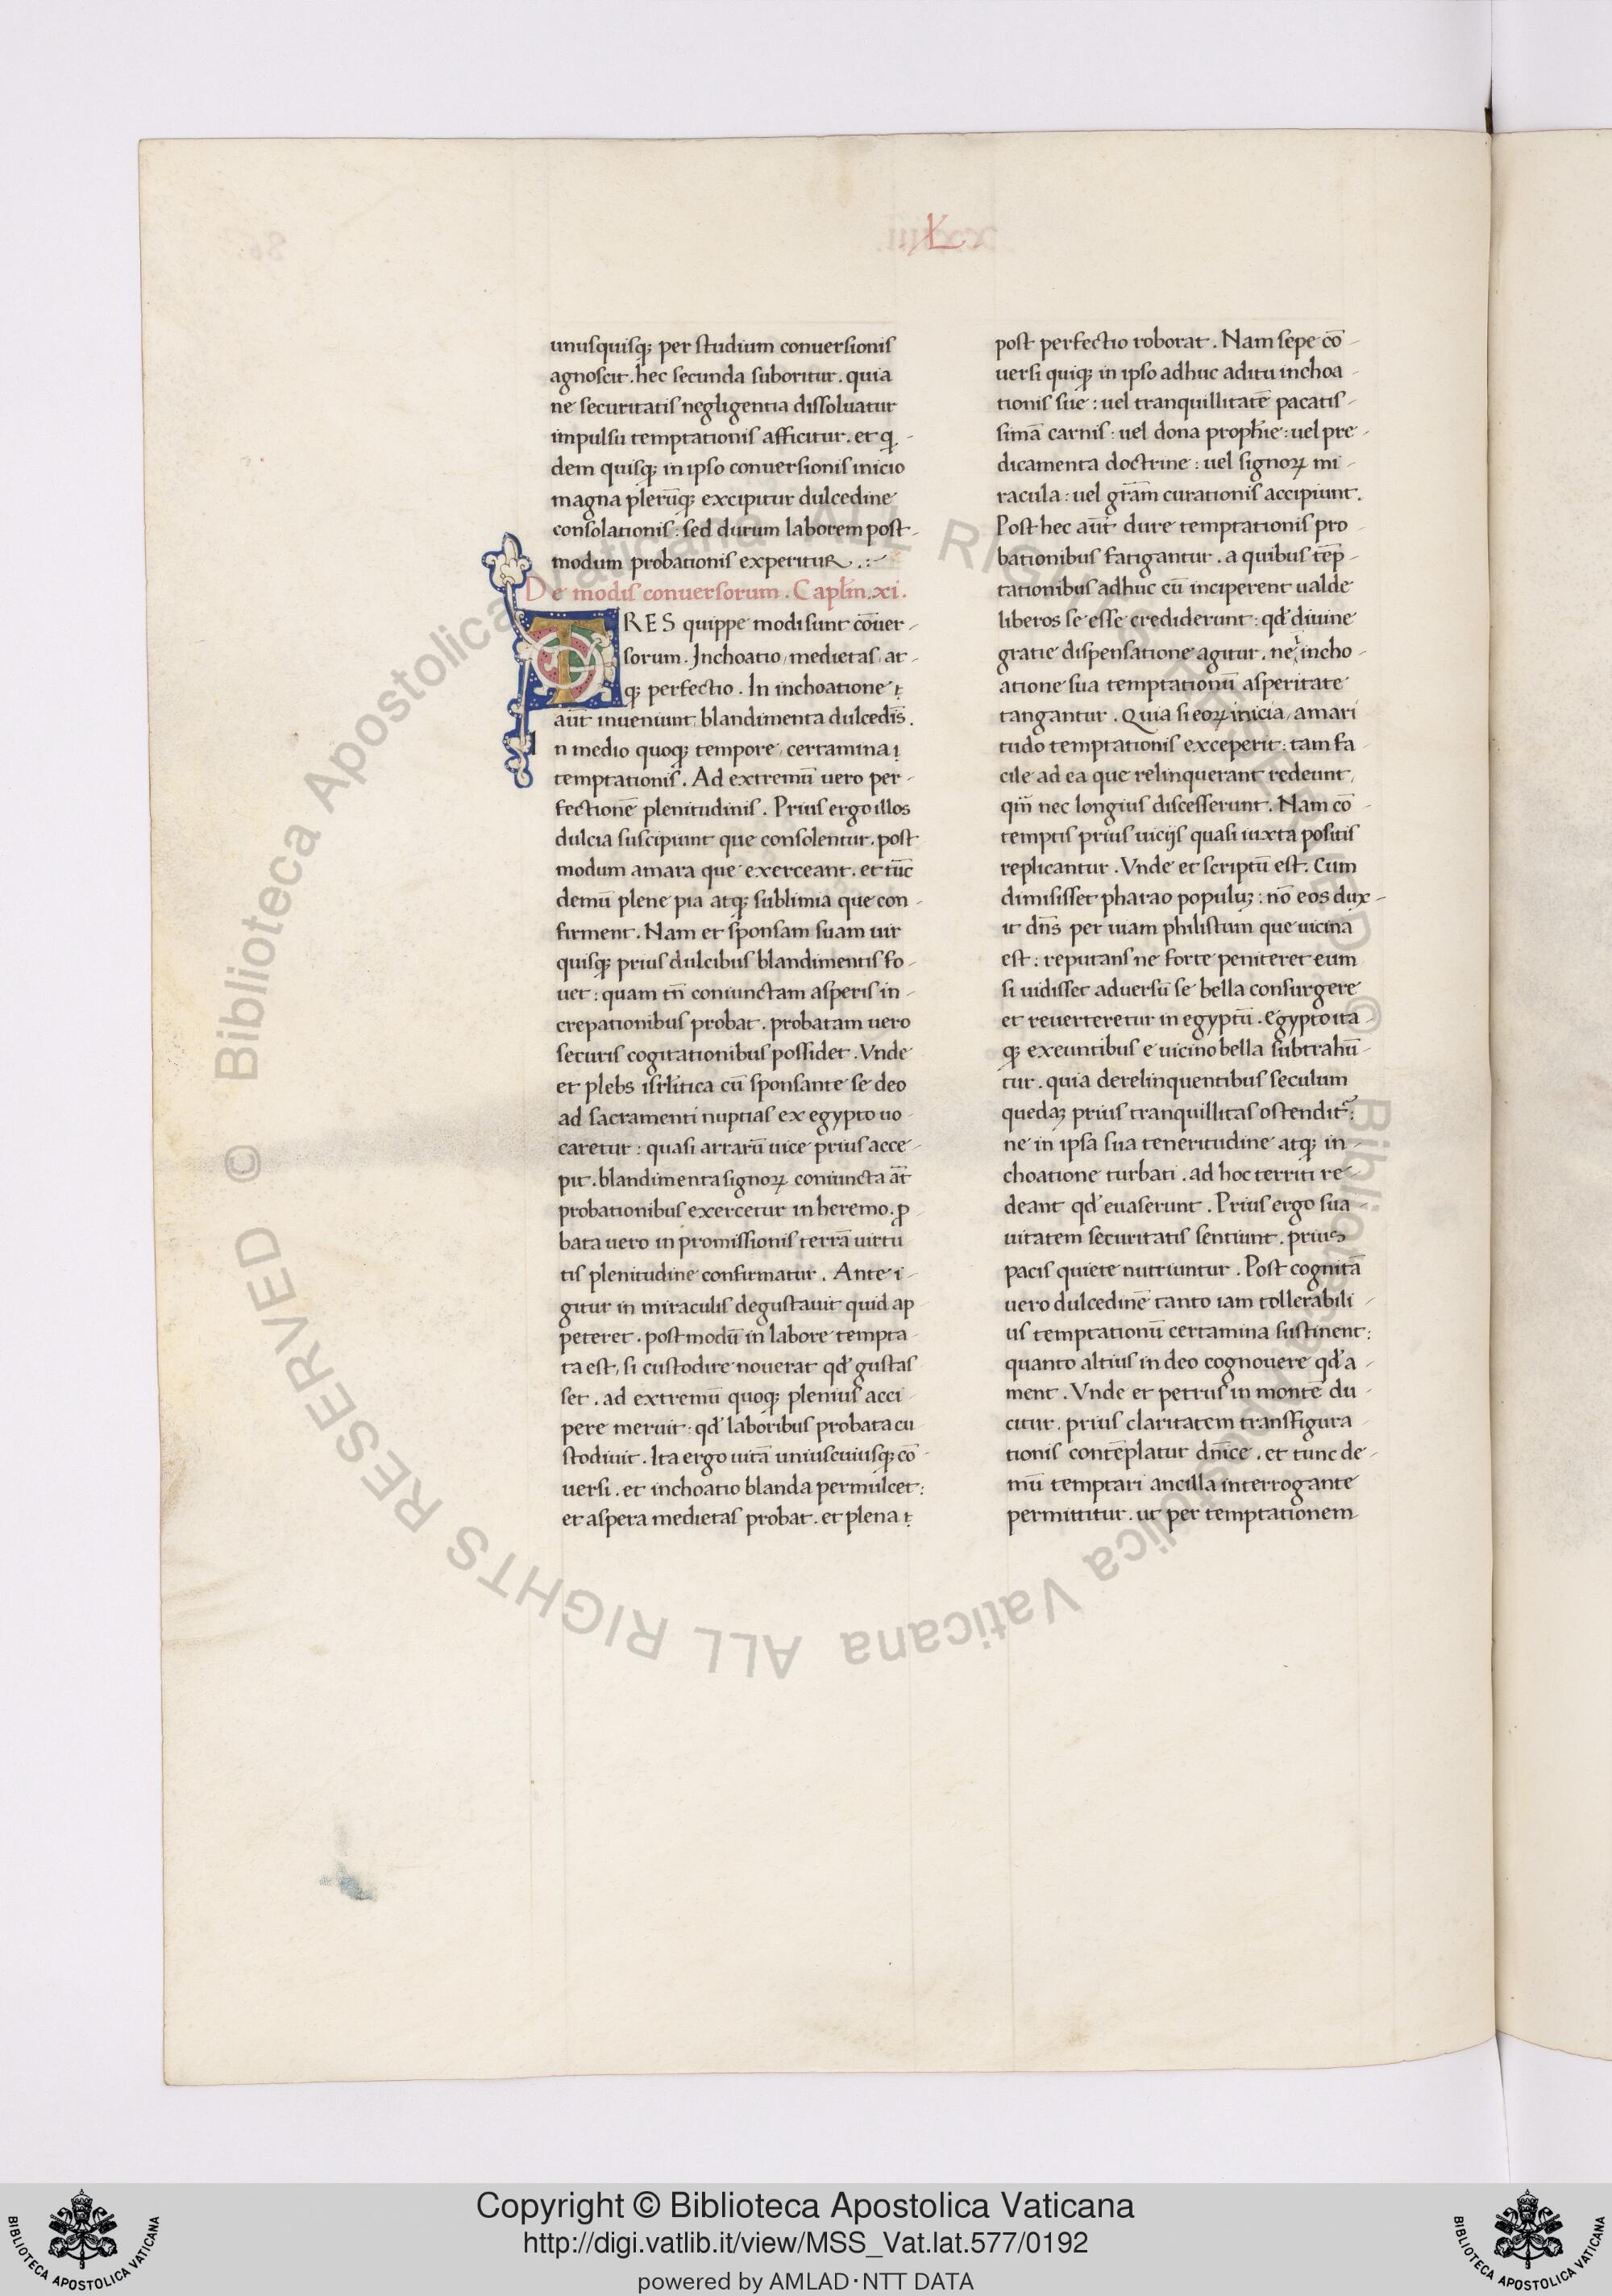 L
unusquisq; per studium conuersionis
agnoscit . hec secunda suboritur . quia
ne securitatis negligentia dissoluatur
impulsu temptationis afficitur . et q
dem quisq; in ipso conuersionis inicio
magna pleru̅q; excipitur dulcedine
consolationis : sed durum laborem post
modum probationis experituR . : ~
De modis conuersorum . Caplm̅ . xi .
TRES quippe modi sunt co̅uer -
sorum . Inchoatio , medietas , at -
q; perfectio . In inchoatione
aut̅ inueniunt blandimenta dulcedis̅ .
n medio quoq; tempore , certamina
temptationis . Ad extremu̅ uero per -
fectione̅ plenitudinis . Prius ergo illos
dulcia suscipiunt que consolentur . post
modum amara que exerceant . et tu̅c
demu̅ plene pia atq; sublimia que con -
firment . Nam et sponsam suam uir
quisq; prius dulcibus blandimentis fo -
uet : quam tn̅ coniunctam asperis in -
crepationibus probat . probatam uero
securis cogitationibus possidet . Vnde
et plebs isrl̅itica cu̅ sponsante se deo
ad sacramenti nuptias ex egypto uo -
caretur : quasi arraru̅ uice prius acce -
pit . blandimenta signoꝝ coniuncta at̅
probationibus exercetur in heremo . ꝓ
bata uero in promissionis terra̅ uirtu
tis plenitudine confirmatur . Ante i -
gitur in miraculis degustauit quid ap
peteret . postmodu̅ in labore tempta -
ta est , si custodire nouerat qd̅ gustas
set . ad extremu̅ quoq; plenius acci -
pere meruit : qd̅ laboribus probata cu
stodiuit . Ita ergo uita̅ uniuscuiusq; co̅ -
uersi . et inchoatio blanda permulcet :
et aspera medietas probat . et plena
post perfectio roborat . Nam sepe co̅ -
uersi quiq; in ipso adhuc aditu inchoa -
tionis sue : uel tranquillitate̅ pacatis -
sima̅ carnis : uel dona proph̅ie : uel pre -
dicamenta doctrine : uel signoꝝ mi -
racula : uel gra̅m curationis accipiunt .
Post hec aut̅ dure temptationis pro -
bationibus fatigantur . a quibus te̅p -
tationibus adhuc cu̅ inciperent ualde
liberos se esse crediderunt : qd̅ diuine
gratie dispensatione agitur . ne incho -
atione sua temptationu̅ asperitate
tangantur . Quia si eoꝝ inicia , amari
tudo temptationis exceperit : tam fa -
cile ad ea que relinquerant redeunt ,
qm̅ nec longius discesserunt . Nam co̅ -
temptis prius uicijs quasi iuxta positis
replicantur . Vnde et scriptu̅ est . Cum
dimisisset pharao populuꝫ : no̅ eos dux -
it dn̅s per uiam philistum que uicina
est : reputans ne forte peniteret eum
si uidisset aduersu̅ se bella consurgere
et reuerteretur in egyptu̅ . Egypto ita -
q; exeuntibus e uicino bella subtrahu̅ -
tur . quia derelinquentibus seculum
quedaꝫ prius tranquillitas ostendit᷑ :
ne in ipsa sua teneritudine atq; in -
choatione turbati . ad hoc territi re -
deant qd̅ euaserunt . Prius ergo sua -
uitatem securitatis sentiunt . prius
pacis quiete nutriuntur . Post cognita̅
uero dulcedine̅ tanto iam tollerabili -
us temptationu̅ certamina sustinent :
quanto altius in deo cognouere qd̅ a -
ment . Vnde et petrus in monte̅ du -
citur . prius claritatem transfigura -
tionis conte̅platur dn̅ice . et tunc de -
mu̅ temptari ancilla interrogante
permittitur . ut per temptationem
© Biblioteca Apostolica Vaticana ALL RIGHTS RESERVED © Biblioteca Apostolica Vaticana ALL RIGHTS RESERVED
Copyright © Biblioteca Apostolica Vaticana
http://digi.vatlib.it/view/MSS_Vat.lat.577/0192
powered by AMLAD · NTT DATA
BIBLIOTECA APOSTOLICA VATICANA
BIBLIOTECA APOSTOLICA VATICANA